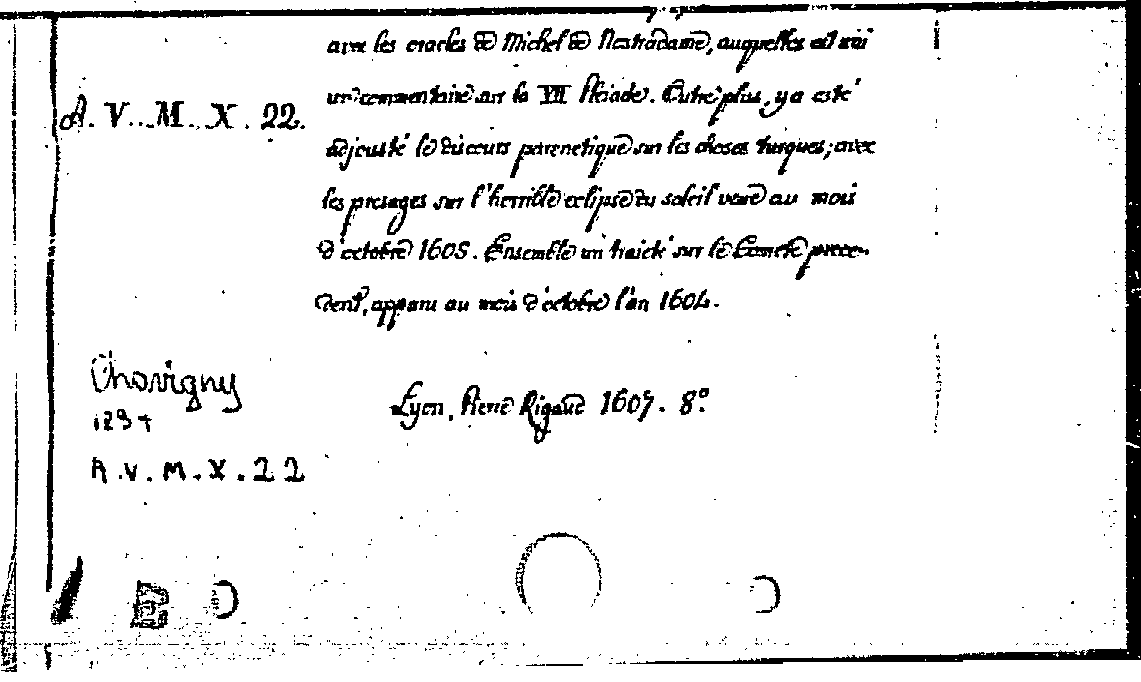 avec les oracles de Michel de Nostradame, auquelles est mis
un commentaire sur la VII Pleiade. Outre plus, y a esté
A. V. M. X. 22.
adjousté le discours parenetique sur les choses turques; avec
les presages sur l'horrible eclipse du soleil venue au mois
d'octobre 1605. Ensemble un traicté sur le Comete prece-
dent, apparu au mois d'octobre l'an 1604.
Chavigny
Lyon, Pierre Rigaud 1607. 8º.
A.V.M.X.22